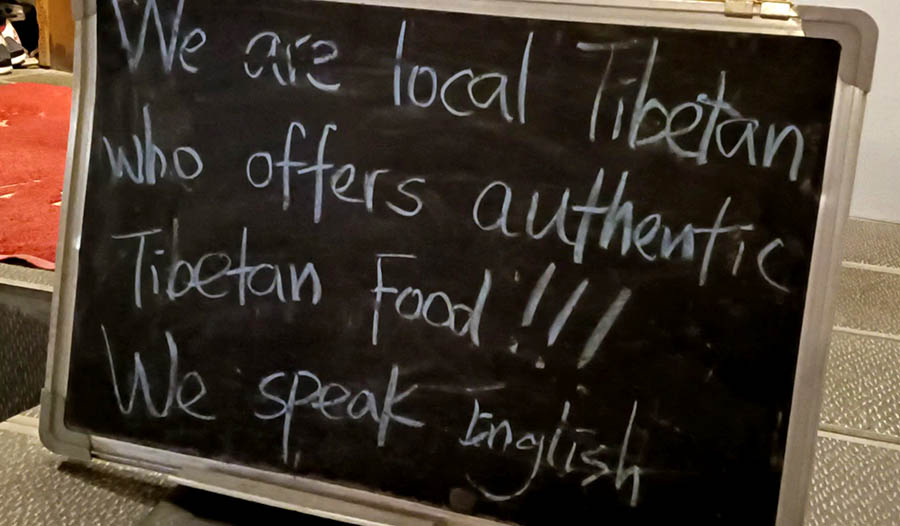 We are local Tibetan
who offers authentic
Tibetan Food!!!
We speak English